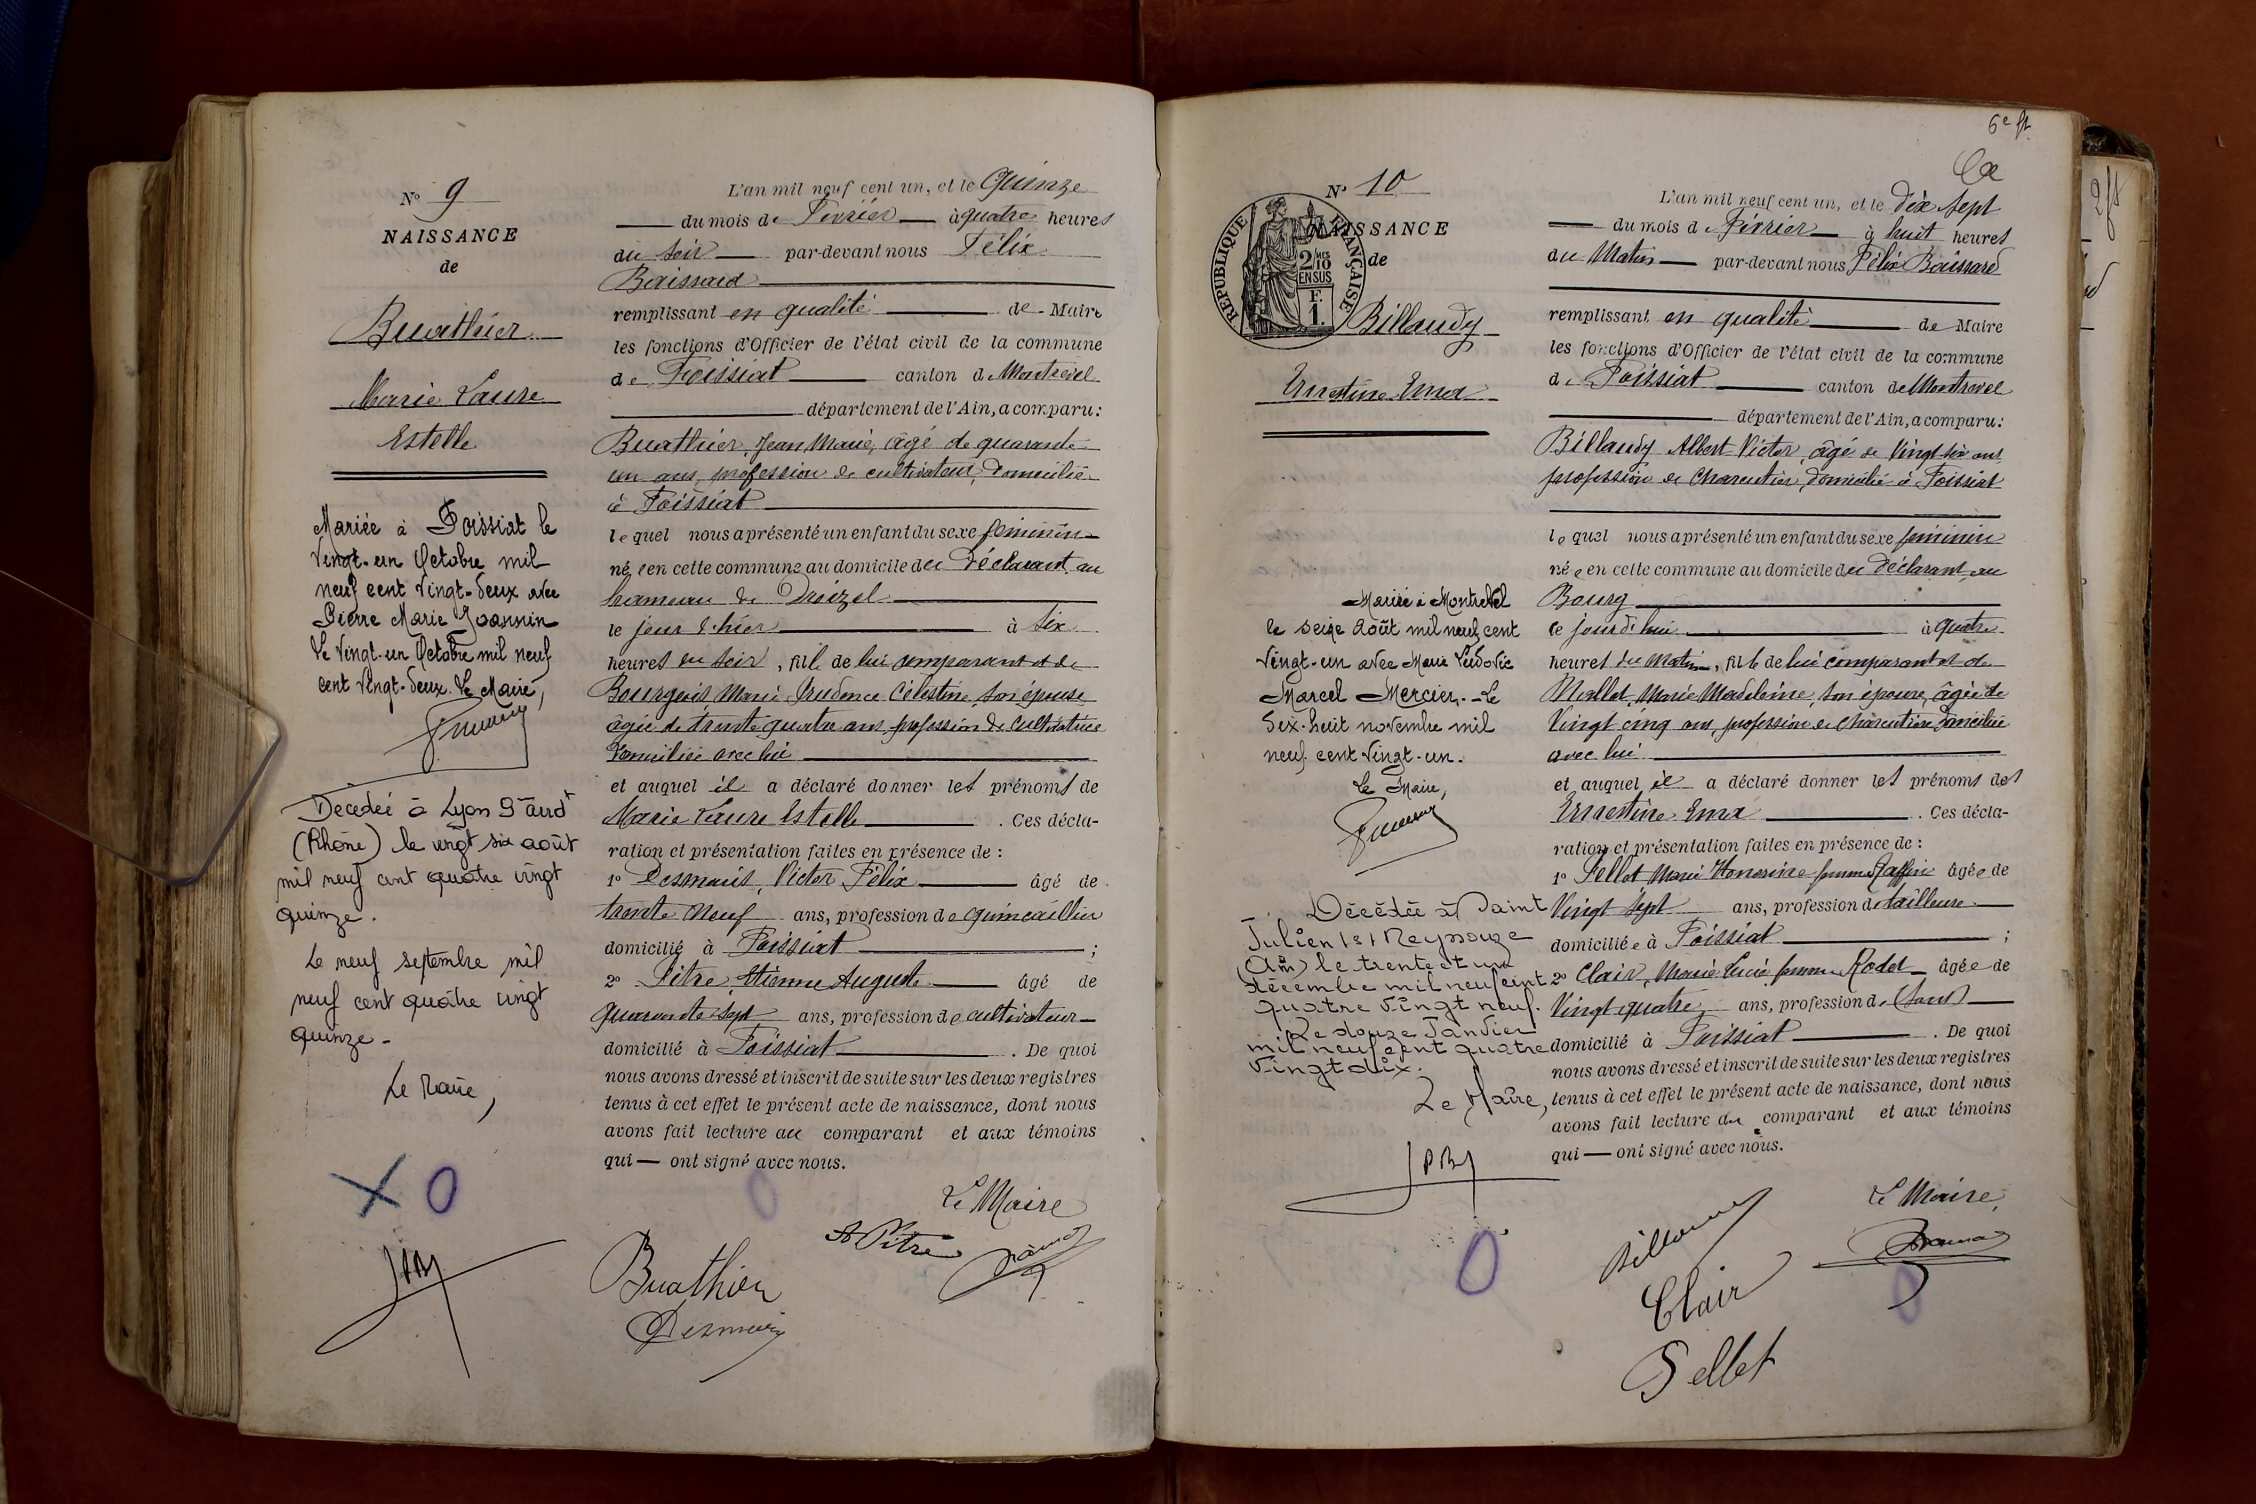 N° 9
NAISSANCE
de
Buathier
Marie Laure
Estelle
Mariée à Foissiat le
vingt-un Octobre mil
neuf cent vingt-deux avec
Pierre Marie Joannin
Le vingt-un Octobre mil neuf
cent vingt-deux. Le Maire,
Décédée à Lyon 9e arrdt
(Rhône) le vingt six août
mil neuf cent quatre vingt
quinze.
Le neuf septembre mil
neuf cent quatre vingt
quinze.
Le Maire,
L'an mil neuf cent un, et le Quinze
du mois de Février à quatre heures
du soir par-devant nous Félix
Boissard
remplissant en qualité de Maire
les fonctions d'Officier de l'état civil de la commune
de Foissiat canton de Montrevel
département de l'Ain, a comparu:
Buathier, Jean Marie, âgé de quarante
un ans, profession de cultivateur, domicilié
à Foissiat
lequel nous a présenté un enfant du sexe féminin
née en cette commune au domicile du Déclarant au
hameau de
le jour d'hier à six
heures du soir, fille de lui comparant et de
Bourgeois Marie Prudence Célestine, son épouse
âgée de trente quatre ans, profession de cultivatrice
domiciliée avec lui
et auquel il a déclaré donner les prénoms de
Marie Laure Estelle. Ces décla-
ration et présentation faites en présence de :
1° Desmaris, Victor Félix âgé de
trente neuf ans, profession de quincaillier
domicilié à Foissiat ;
2° Pitre, Etienne Auguste âgé de
quarante sept ans, profession de cultivateur
domicilié à Foissiat. De quoi
nous avons dressé et inscrit de suite sur les deux registres
tenus à cet effet le présent acte de naissance, dont nous
avons fait lecture au comparant et aux témoins
qui — ont signé avec nous.
Le Maire
A Pitre
Buathier
Desmaris
6e ft
N° 10
NAISSANCE
de
RÉPUBLIQUE FRANÇAISE
2/10 EN SUS
F. 1.
Billaudy
Ernestine Ema
Mariée à Montrevel
le seize août mil neuf cent
vingt-un avec Marie Ludovic
Marcel Mercier. - Le
dix-huit novembre mil
neuf cent vingt-un.
Le Maire,
Décédée à Saint
Julien s/ Reyssouze
(Ain) le trente et un
décembre mil neuf cent
quatre vingt neuf.
Le douze Janvier
mil neuf cent quatre
vingt dix.
Le Maire,
L'an mil neuf cent un, et le dix sept
du mois de Février à huit heures
du Matin par-devant nous Félix Boissard
remplissant en qualité de Maire
les fonctions d'Officier de l'état civil de la commune
de Foissiat canton de Montrevel
département de l'Ain, a comparu:
Billaudy Albert Victor, âgé de vingt six ans
profession de Charcutier, domicilié à Foissiat
lequel nous a présenté un enfant du sexe féminin
née en cette commune au domicile du Déclarant au
Bourg
ce jourd'hui à quatre
heures du matin, fille de lui comparant et de
Mallet, Marie Madeleine, son épouse, âgée de
Vingt cinq ans, profession de charcutière domiciliée
avec lui
et auquel il a déclaré donner les prénoms des
Ernestine Ema. Ces décla-
ration et présentation faites en présence de :
1° Pellet Marie Honorine femme Raffin âgée de
Vingt sept ans, profession de tailleuse
domiciliée à Foissiat ;
2° Clair, Marie Lucie femme Rodet âgée de
Vingt quatre ans, profession de (sans)
domicilié à Foissiat. De quoi
nous avons dressé et inscrit de suite sur les deux registres
tenus à cet effet le présent acte de naissance, dont nous
avons fait lecture au comparant et aux témoins
qui — ont signé avec nous.
Le Maire,
Clair
Pellet
2 ft